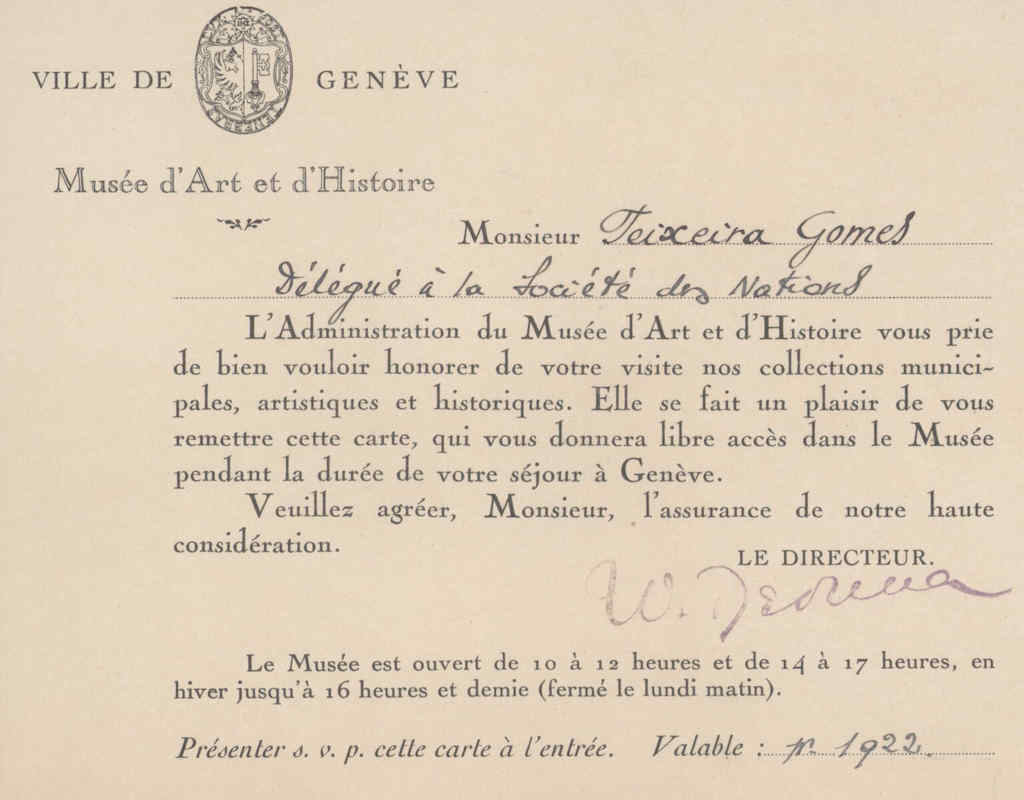 VILLE DE GENÈVE
Musée d'Art et d'Histoire
Monsieur Teixeira Gomes
Délégué à la Société des Nations
L'Administration du Musée d'Art et d'Histoire vous prie
de bien vouloir honorer de votre visite nos collections munici-
pales, artistiques et historiques. Elle se fait un plaisir de vous
remettre cette carte, qui vous donnera libre accès dans le Musée
pendant la durée de votre séjour à Genève.
Veuillez agréer, Monsieur, l'assurance de notre haute
considération.
LE DIRECTEUR.
W. Deonna
Le Musée est ouvert de 10 à 12 heures et de 14 à 17 heures, en
hiver jusqu'à 16 heures et demie (fermé le lundi matin).
Présenter s. v. p. cette carte à l'entrée. Valable : pr. 1922.